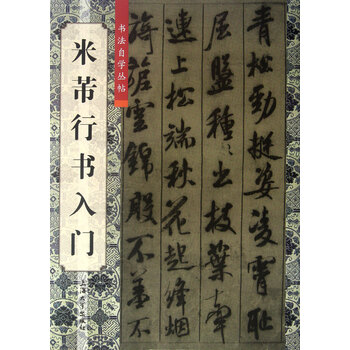 书法自学丛帖
米芾行书入门
青松勁挺姿凌霄耻
屈盤種〻出枝葉牽
連上松端秋花起絳烟
旖旎雲錦殷不羞不
上海大学出版社